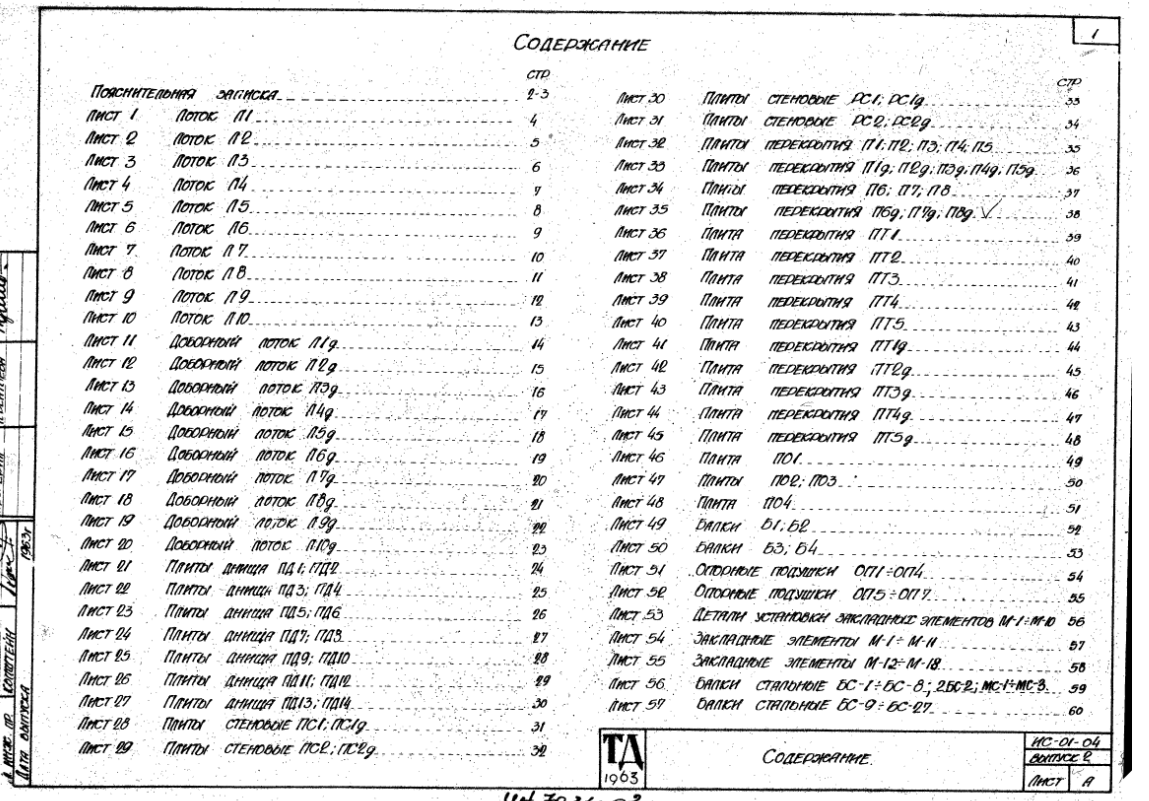 1
Содержание
стр
Пояснительная записка 2-3
Лист 1 Лоток Л1 4
Лист 2 Лоток Л2 5
Лист 3 Лоток Л3 6
Лист 4 Лоток Л4 7
Лист 5 Лоток Л5 8
Лист 6 Лоток Л6 9
Лист 7 Лоток Л7 10
Лист 8 Лоток Л8 11
Лист 9 Лоток Л9 12
Лист 10 Лоток Л10 13
Лист 11 Доборный лоток Л1д 14
Лист 12 Доборный лоток Л2д 15
Лист 13 Доборный лоток Л3д 16
Лист 14 Доборный лоток Л4д 17
Лист 15 Доборный лоток Л5д 18
Лист 16 Доборный лоток Л6д 19
Лист 17 Доборный лоток Л7д 20
Лист 18 Доборный лоток Л8д 21
Лист 19 Доборный лоток Л9д 22
Лист 20 Доборный лоток Л10д 23
Лист 21 Плиты днища ПД1; ПД2 24
Лист 22 Плиты днища ПД3; ПД4 25
Лист 23 Плиты днища ПД5; ПД6 26
Лист 24 Плиты днища ПД7; ПД8 27
Лист 25 Плиты днища ПД9; ПД10 28
Лист 26 Плиты днища ПД11; ПД12 29
Лист 27 Плиты днища ПД13; ПД14 30
Лист 28 Плиты стеновые ПС1; ПС1д 31
Лист 29 Плиты стеновые ПС2; ПС2д 32
стр
Лист 30 Плиты стеновые РС1; РС1д 33
Лист 31 Плиты стеновые РС2; РС2д 34
Лист 32 Плиты перекрытия П1; П2; П3; П4; П5 35
Лист 33 Плиты перекрытия П1д; П2д; П3д; П4д; П5д 36
Лист 34 Плиты перекрытия П6; П7; П8 37
Лист 35 Плиты перекрытия П6д; П7д; П8д 38
Лист 36 Плита перекрытия ПТ1 39
Лист 37 Плита перекрытия ПТ2 40
Лист 38 Плита перекрытия ПТ3 41
Лист 39 Плита перекрытия ПТ4 42
Лист 40 Плита перекрытия ПТ5 43
Лист 41 Плита перекрытия ПТ1д 44
Лист 42 Плита перекрытия ПТ2д 45
Лист 43 Плита перекрытия ПТ3д 46
Лист 44 Плита перекрытия ПТ4д 47
Лист 45 Плита перекрытия ПТ5д 48
Лист 46 Плита ПО1 49
Лист 47 Плиты ПО2; ПО3 50
Лист 48 Плита ПО4 51
Лист 49 Балки Б1; Б2 52
Лист 50 Балки Б3; Б4 53
Лист 51 Опорные подушки ОП1÷ОП4 54
Лист 52 Опорные подушки ОП5÷ОП7 55
Лист 53 Детали установки закладных элементов М-1÷М-10 56
Лист 54 Закладные элементы М-1÷М-11 57
Лист 55 Закладные элементы М-12÷М-18 58
Лист 56 Балки стальные БС-1÷БС-8; 2БС-2; МС-1÷МС-3 59
Лист 57 Балки стальные БС-9÷БС-27 60
ТД
1963
Содержание
ИС-01-04
Выпуск 2
Лист А
Дата выпуска
1963г